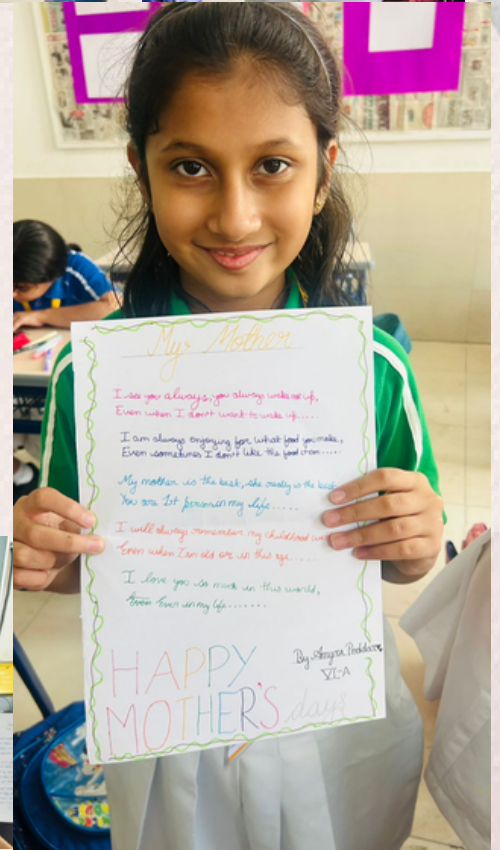 My Mother
I see you always, you always wake me up,
Even when I don't want to wake up.....
I am always enjoying for what food you make,
Even sometimes I don't like the food item.....
My mother is the best, she really is the best
You are 1st person in my life.....
I will always remember my childhood
Even when I am old or in this age.....
I love you so much in this world,
Ever in my life.......
By
VI-A
HAPPY
MOTHER'S days